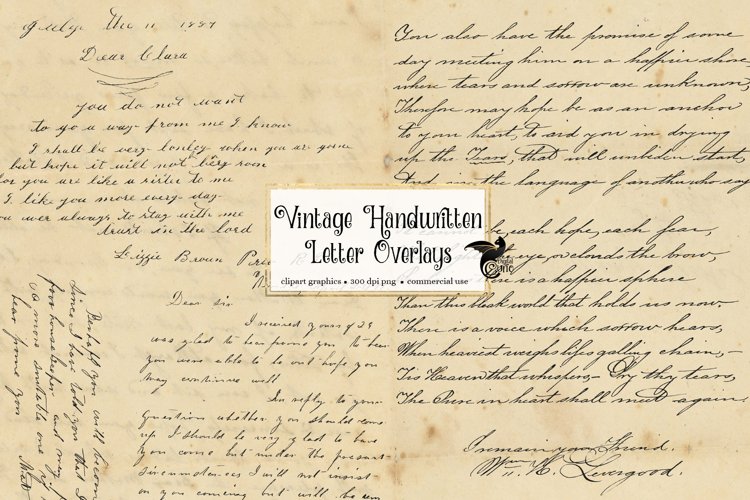 Dec 11 1887
Dear Clara
you do not want
to go a way from me I know
I shall be very lonley when you are gone
but hope it will not be very soon
for you are like a sister to me
I like you more every day
you wer always to stay with me
trust in the lord
Lizzie Brown
Dear sir
I received yours of 29
was glad to hear from you to hear
you were able to be out hope you
may continue well
In reply to your
question whether you should come
up I should be very glad to have
you come but under the present
circumstances I will not insist
on you coming but will be
Perhaps you will become
since I have told you that I
poor housekeeper and may
a more suitable one
hear from you
You also have the promise of some
day meeting him on a happier shore
where tears and sorrow are unknown,
Therefore may hope be as an anchor
to your heart, to aid you in drying
up the Tears, that will unbiden start,
And in the language of another who say
be, each hope, each fear,
eye, or clouds the brow,
here is a happier sphere
Than this bleak world that holds us now.
There is a voice which sorrow hears,
When heaviest weighs lifes galling chain,-
Tis Heaven that whispers,- Dry thy tears,
The Pure in heart shall meet again.
I remain your Friend.
Wm. H. Livergood.
Vintage Handwritten
Letter Overlays
clipart graphics • 300 dpi png • commercial use
Digital
Curio